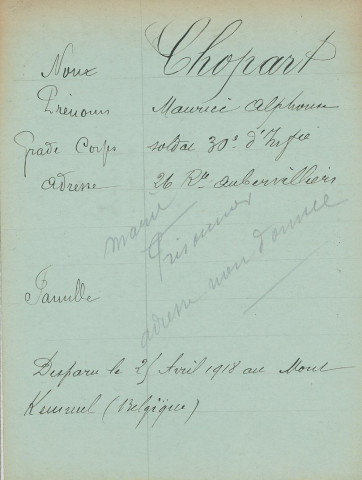 Noms Chopart
Prénoms Maurice Alphonse
Grade Corps soldat 30e d'Inftie
Adresse 26 Rue Aubervilliers
marié
Prisonnier
adresse non donnée
Famille
Disparu le 25 Avril 1918 au Mont
Kemmel (Belgique)